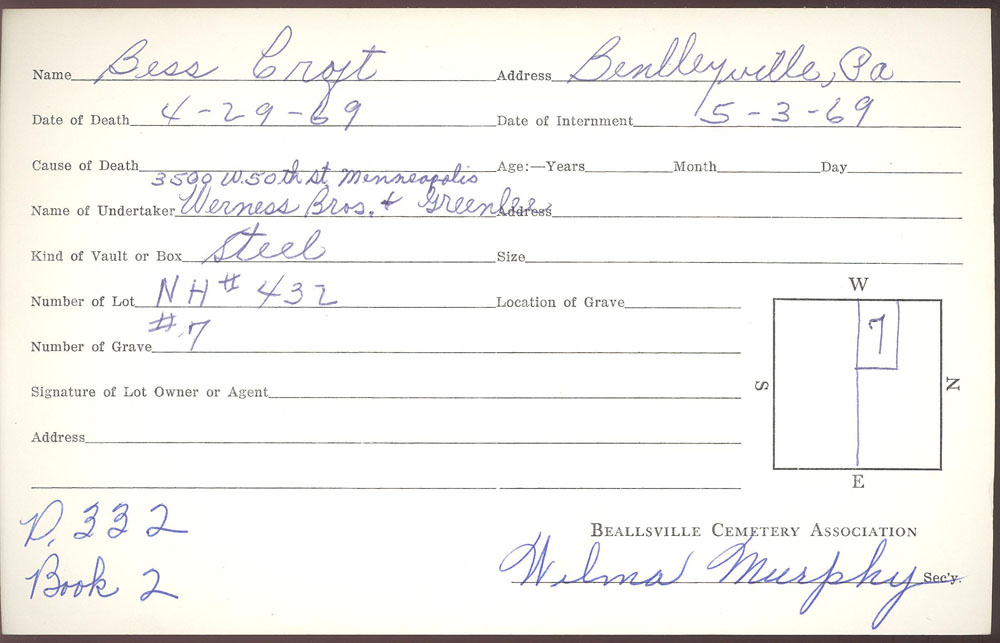 Name Bess Croft Address Bentlleyville, Pa
Date of Death 4-29-69 Date of Internment 5-3-69
Cause of Death Age:—Years Month Day
3500 W. 50th St. Menneapolis
Name of Undertaker Werness Bros. & Greenlee Address
Kind of Vault or Box Steel Size
Number of Lot NH# 432 Location of Grave
Number of Grave #7
Signature of Lot Owner or Agent
Address
W
7
S
N
E
P. 332
Book 2
BEALLSVILLE CEMETERY ASSOCIATION
Wilma Murphy Sec'y.